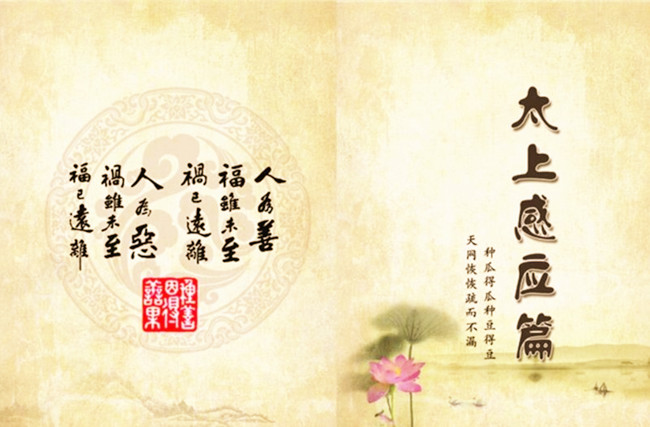 太上感应篇
种瓜得瓜种豆得豆
天网恢恢疏而不漏
人為善
福雖未至
禍已遠離
人為惡
禍雖未至
福已遠離
種善
因得
善果